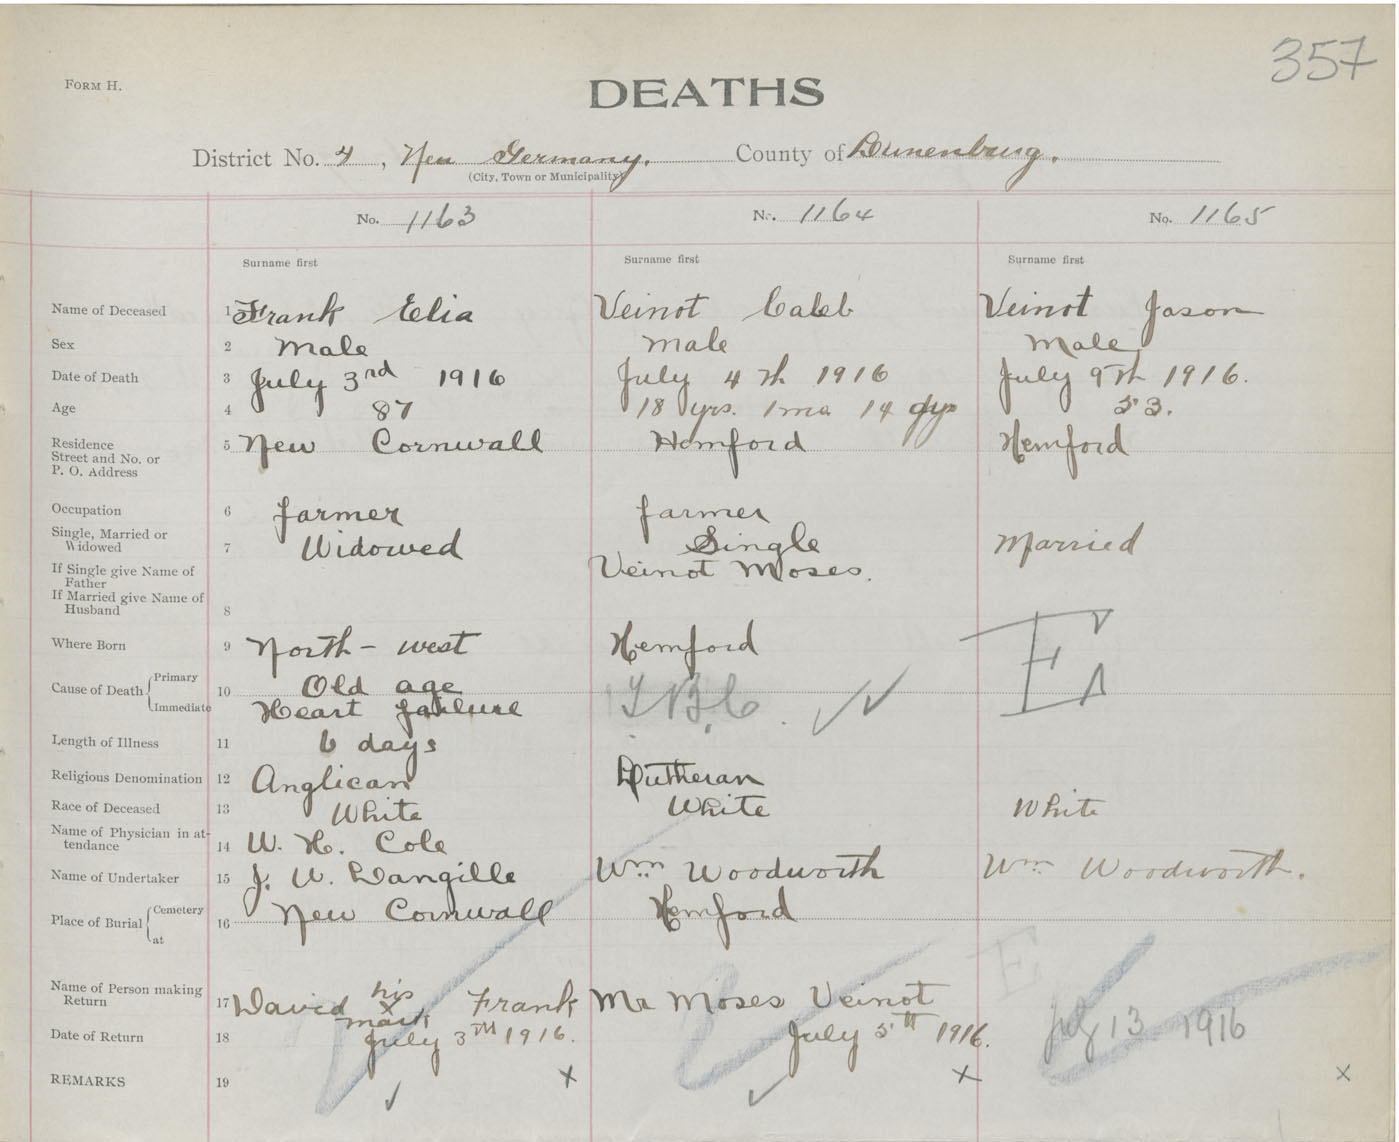 357
FORM H.
DEATHS
District No. 4, New Germany. County of Lunenburg.
(City, Town or Municipality)
No. 1163 No. 1164 No. 1165
Surname first Surname first Surname first
Name of Deceased 1 Frank Elia Veinot Caleb Veinot Jason
Sex 2 Male Male Male
Date of Death 3 July 3rd 1916 July 4th 1916 July 9th 1916.
Age 4 87 18 yrs. 1 mo 14 dys 53.
Residence
Street and No. or
P. O. Address 5 New Cornwall Hemford Hemford
Occupation 6 farmer farmer
Single, Married or
Widowed 7 Widowed Single Married
If Single give Name of
Father Veinot Moses.
If Married give Name of
Husband 8
Where Born 9 North-west Hemford
Cause of Death Primary 10 Old age T.B.C.
Immediate Heart failure
Length of Illness 11 6 days
Religious Denomination 12 Anglican Lutheran
Race of Deceased 13 White White White
Name of Physician in at-
tendance 14 W. H. Cole
Name of Undertaker 15 J. W. Langille Wm. Woodworth Wm. Woodworth.
Place of Burial Cemetery 16 New Cornwall Hemford
at
Name of Person making
Return 17 David his x mark Frank Mr Moses Veinot
Date of Return 18 July 3TH 1916. July 5th 1916. July 13 1916
REMARKS 19 x x x